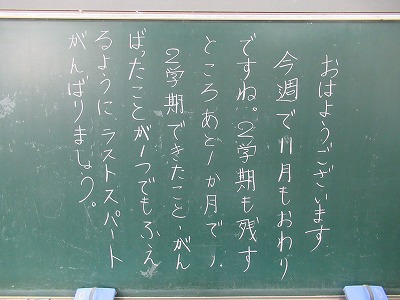 おはようございます
今週で11月もおわり
ですね。2学期も残す
ところあと1か月で、
2学期できたこと、がん
ばったことが1つでもふえ
るように、ラストスパート
がんばりましょう。